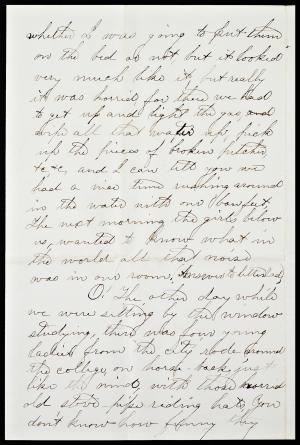 whether I was going to put them
on the bed or not but it looked
very much like it, but really
it was horrid for there we had
to get up and light the gas and
wipe all that water up, pick
up the pieces of broken pitcher
&c &c, and I can tell you we
had a nice time rushing around
in the water with our barefeet.
The next morning the girls below
us, wanted to know what in
the world all that noise
was in our room,
O! The other day while
we were sitting by the window
studying, there was four young
ladies from the city rode around
the college, on horse-back, just
like the wind, with those horrid
old stove pipe riding hats, You
don't know how funny they